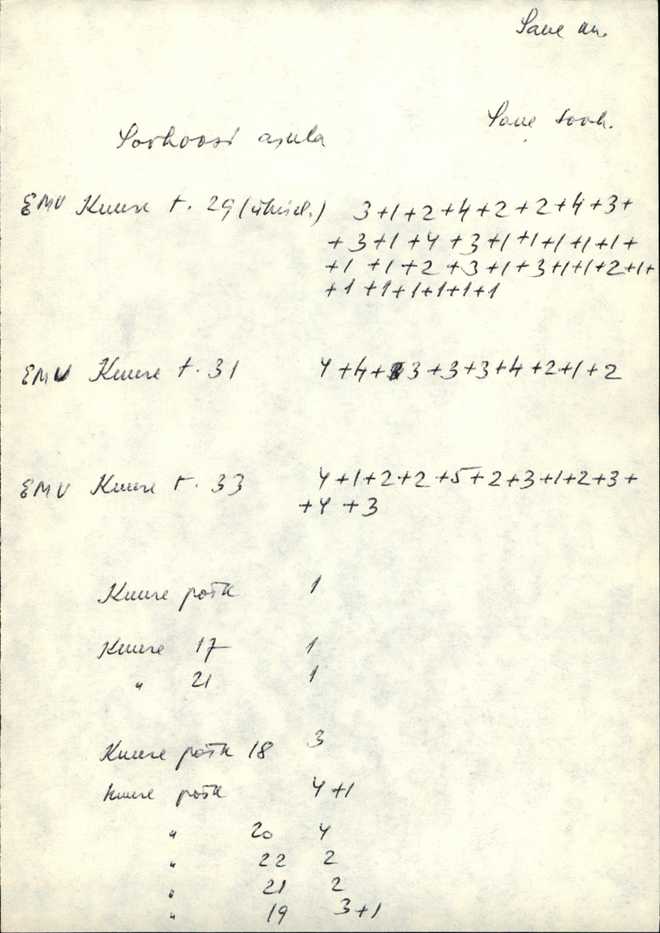 Saue an.
Saue sovh.
Sovhoosi asula
EMV Kuuse t. 29 (ühisel.) 3+1+2+4+2+2+4+3+
+3+1+4+3+1+1+1+1+1+
+1+1+2+3+1+3+1+1+2+1+
+1+1+1+1+1+1
EMV Kuuse t. 31 4+4+3+3+3+4+2+1+2
EMV Kuuse t. 33 4+1+2+2+5+2+3+1+2+3+
+4+3
Kuuse põik 1
Kuuse 17 1
" 21 1
Kuuse põik 18 3
Kuuse põik 4+1
" 20 4
" 22 2
" 21 2
" 19 3+1